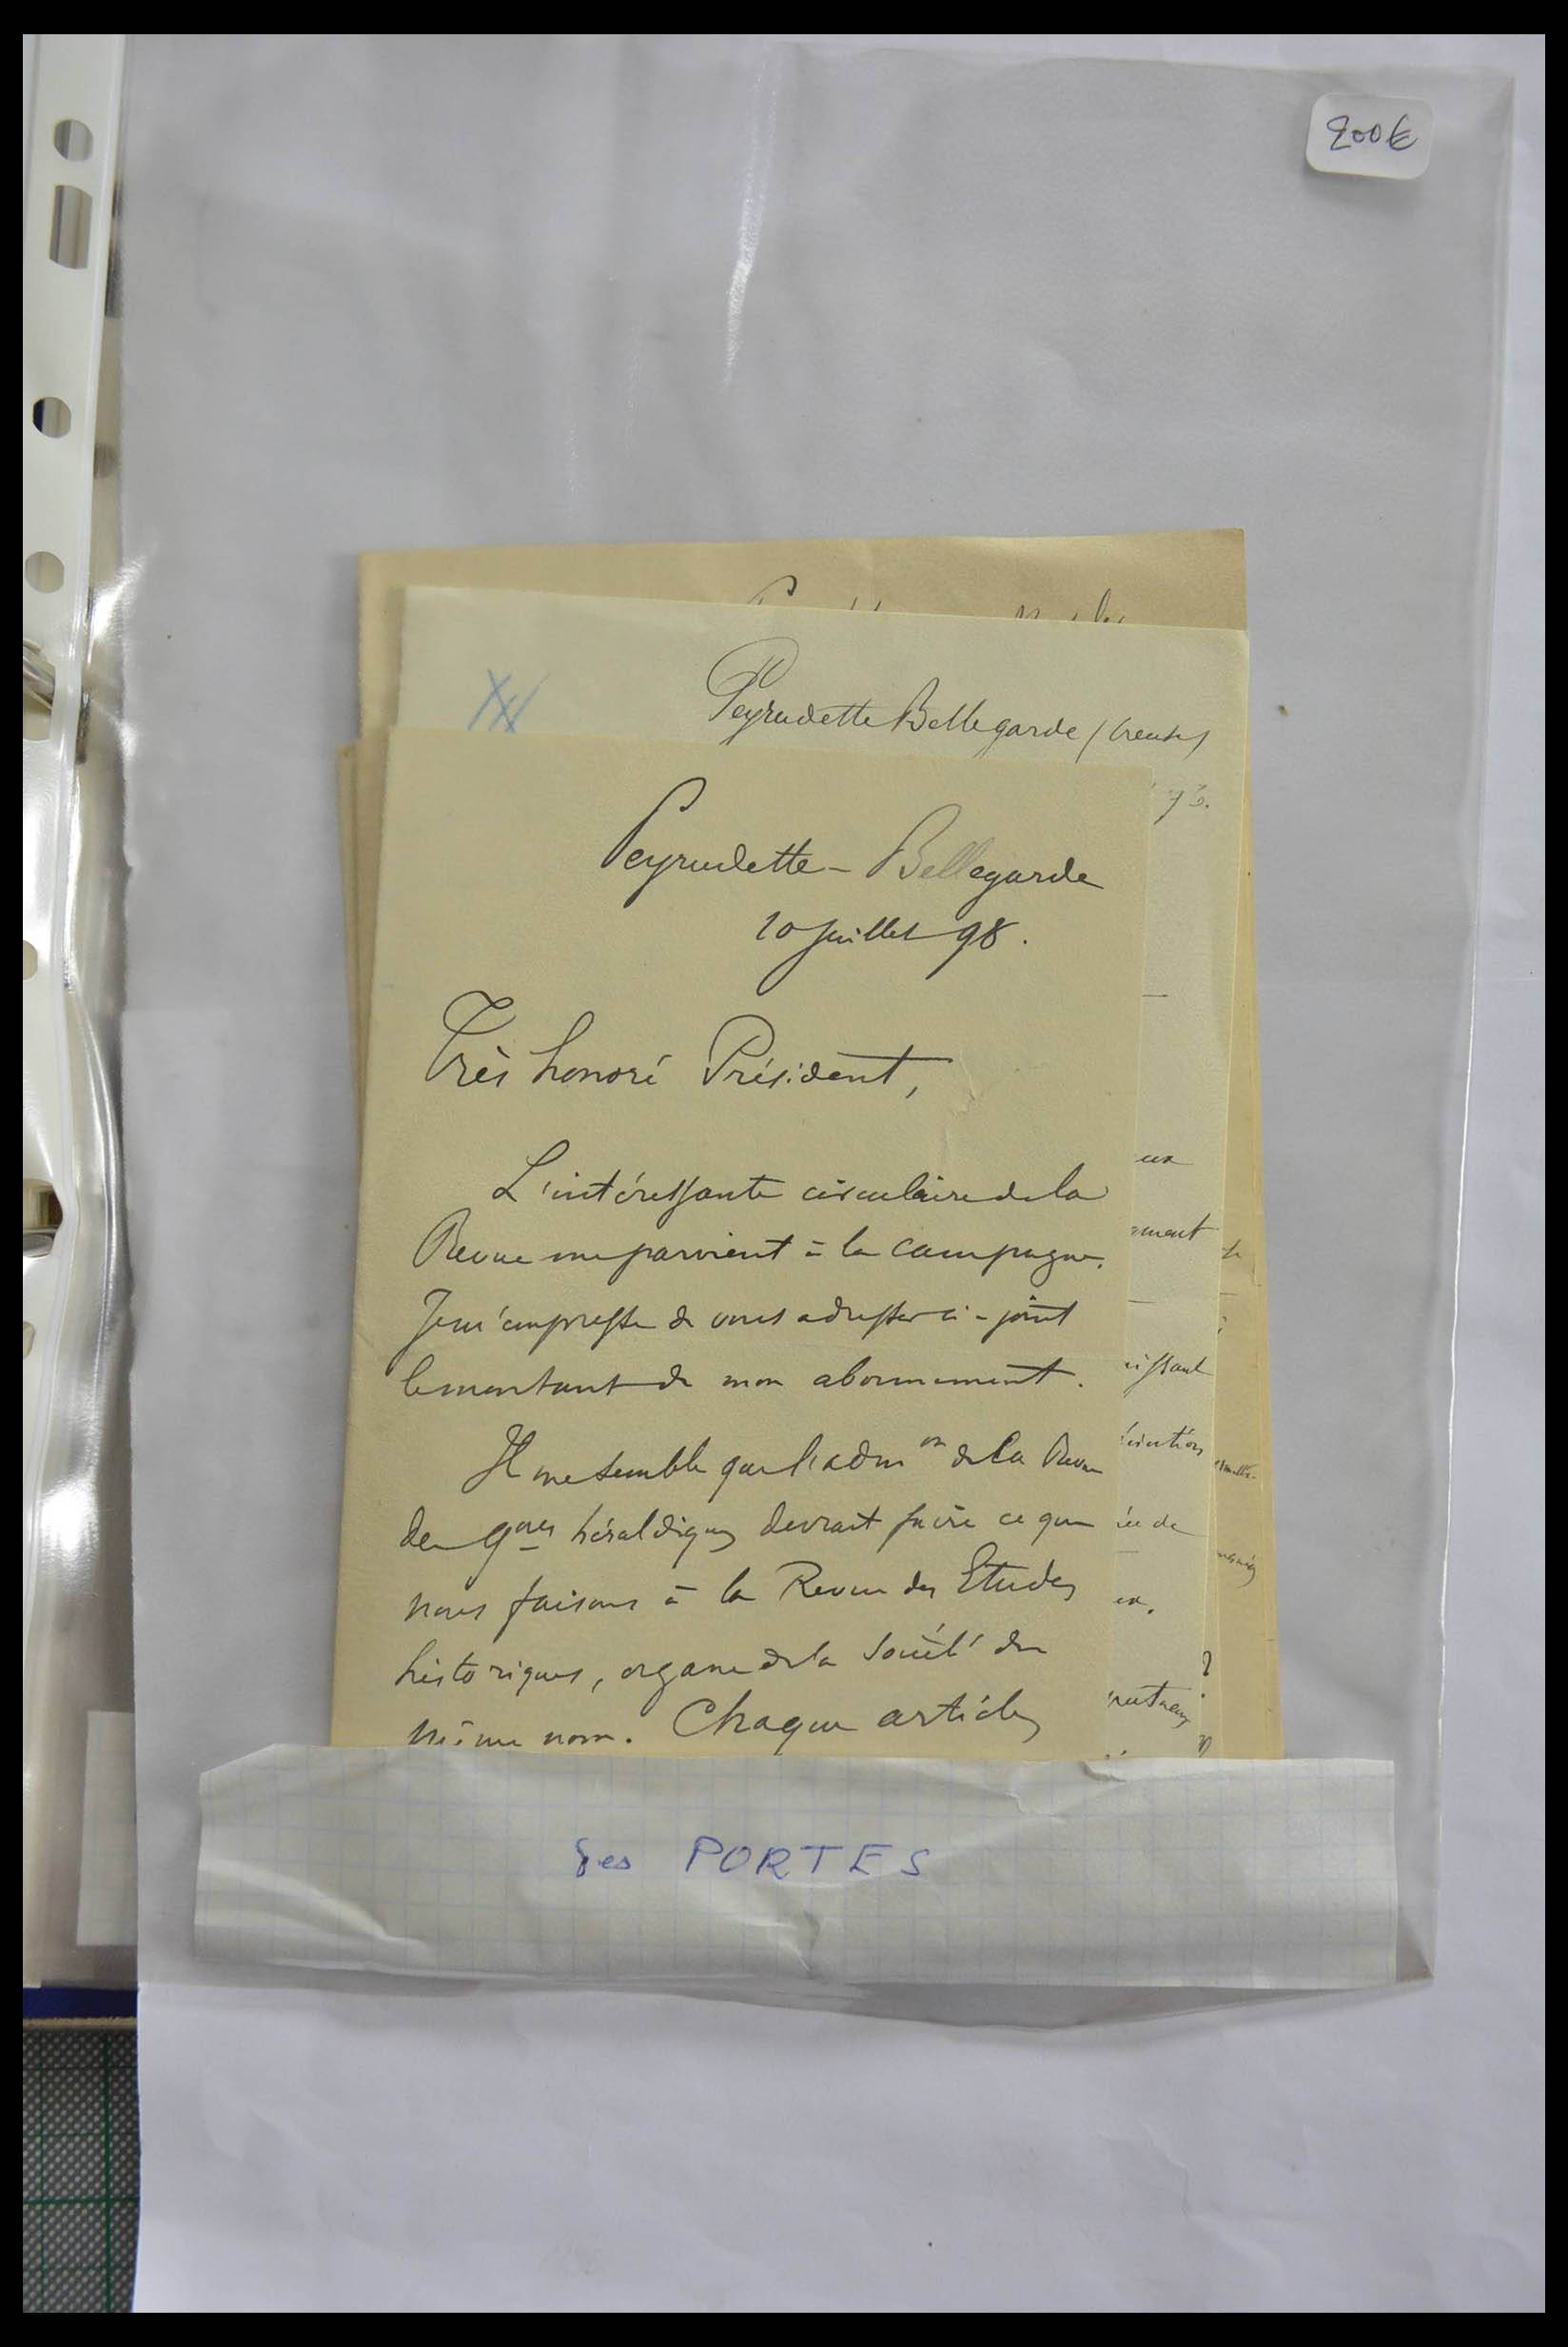 200€
Peyrudette Bellegarde (Creuse)
93.
Peyrudette - Bellegarde
10 juillet 98.
Très honoré Président,
L'intéressante circulaire de la
Revue me parvient à la campagne.
Je m'empresse de vous adresser ci-joint
le montant de mon abonnement.
Il me semble que l'admon de la Revue
des qons héraldiques devrait faire ce que
nous faisons à la Revue des Etudes
historiques, organe de la Société du
même nom. Chaque article
eux
issant
ée de
des PORTES